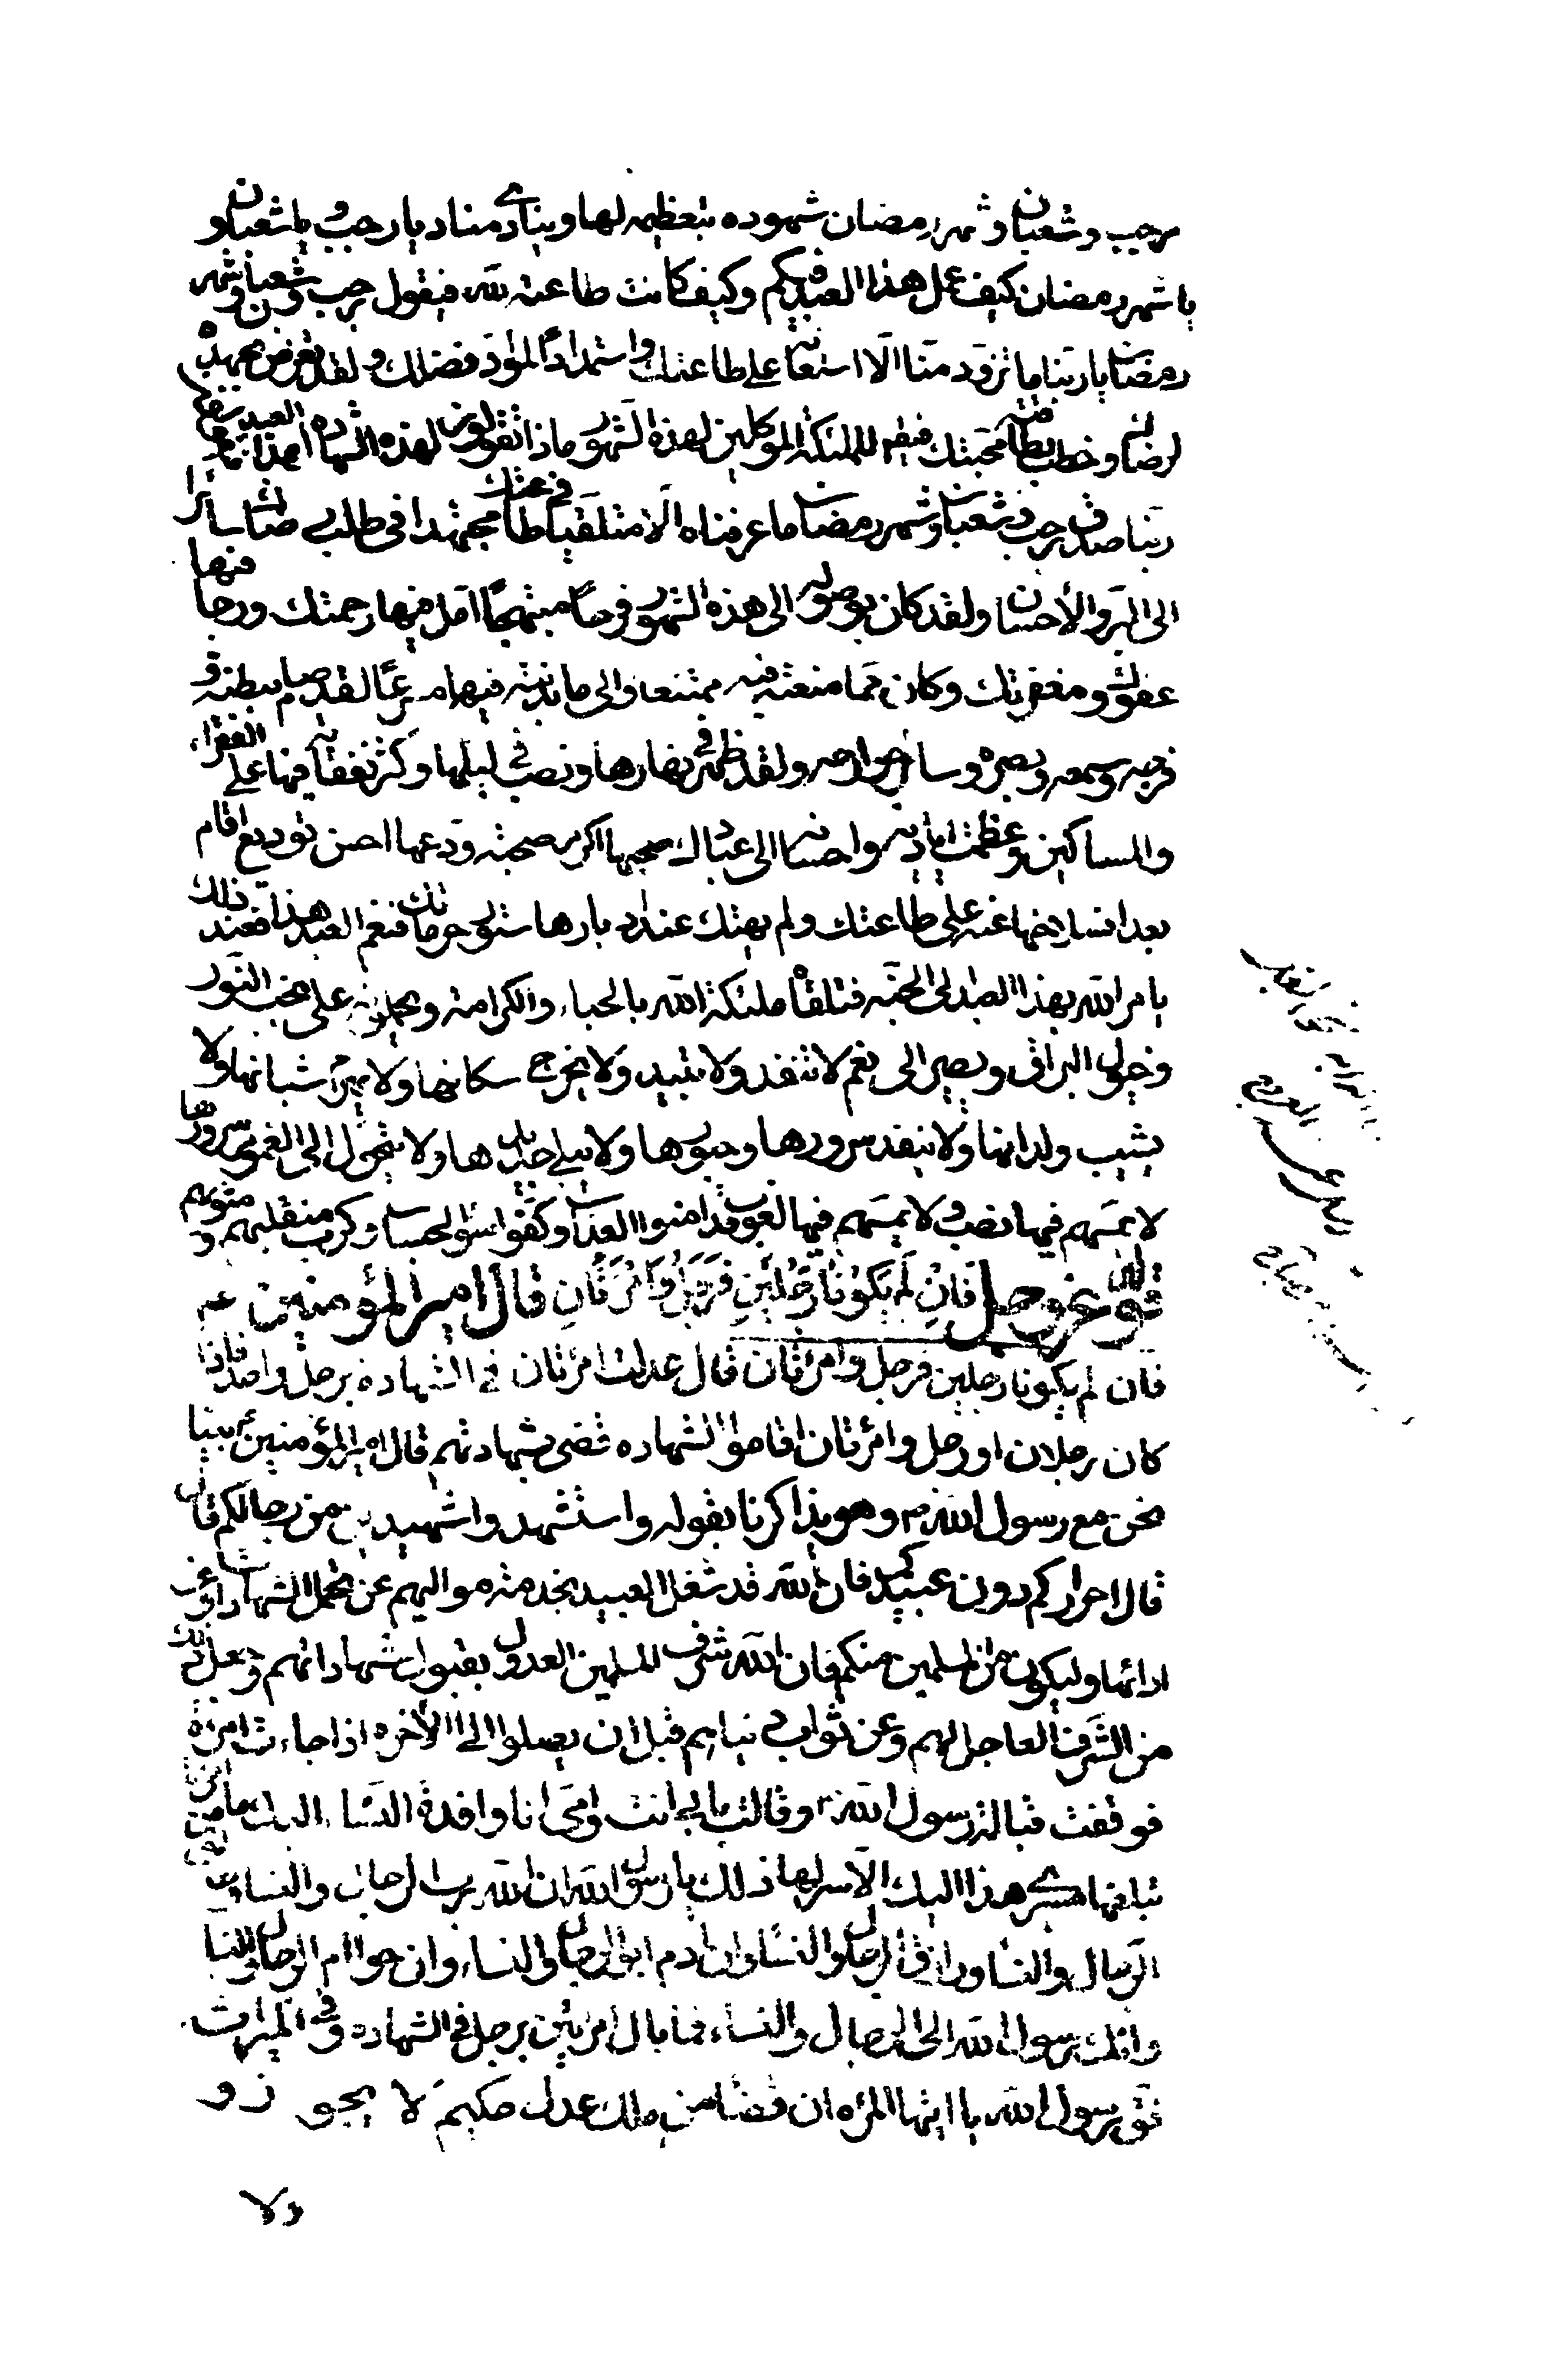 رجب وشعبان وشهر رمضان شهوده بتعظيمه لها وينادي مناد يا رجب ويا شعبان و
يا شهر رمضان كيف عمل هذا العبد فيكم وكيف كانت طاعته لله فيقول رجب وشعبان وشهر
رمضان يا ربنا ما تزود منا الا استعانة على طاعتك واستمدادًا لمواد فضلك ولقد تعرض بجهده
لرضاك وطلب بطاقته محبتك فيقول للملئكة الموكلين بهذه الشهور ماذا تقولون لهذه الشهادة لهذا العبد فيقولون
ربنا صدق رجب وشعبان وشهر رمضان ما عرفناه الا متلقيا في طاعتك مجتهدا في طلب رضاك سائرا
الى البر والاحسان ولقد كان بوصوله الى هذه الشهور فرحًا مبتهجًا امل فيها رحمتك ورجا فيها
عفوك ومغفرتك وكان مما منعته فيه ممتنعا والى ما ندبته فيها مسرعًا لقد صام ببطنه و
فرجه وسمعه وبصره وسائر جوارحه ولقد ظمئ في نهارها ونصب في ليلها وكثر نفقاته فيها على الفقراء
والمساكين وعظمت اياديه واحسانه الى عبادك صحبها اكرم صحبة وودعها احسن توديع اقام
بعد انسلاخها عنه على طاعتك ولم يهتك عند ادبارها ستور حرماتك فنعم العبد هذا فعند ذلك
يا مر الله بهذا العبد الى الجنة فتلقاه ملئكة الله بالحباء والكرامة ويحملونه على نجب النور
وخيول البراق ويصير الى نعيم لا تنفد ولا تبيد ولا يخرج سكانها ولا يهرم شبانها ولا
يشيب ولدانها ولا ينفد سرورها وحبورها ولا يبلى جديدها ولا يتحول الى الغموم سرورها
لا يمسهم فيها نصب ولا يمسهم فيها لغوب قد امنوا العذاب وكفوا سوء الحساب وكرم منقلبهم و مثويهم
قوله عز وجل فَإِنْ لَمْ يَكُونَا رَجُلَيْنِ فَرَجُلٌ وَامْرَأَتَانِ قال امير المؤمنين عم
فان لم يكونا رجلين فرجل وامرئتان قال عدلت امرئتان في الشهادة برجل واحد فاذا
كان رجلان او رجل وامرئتان اقاموا الشهادة قضى بشهادتهم قال امير المؤمنين ع بينا
نحن مع رسول الله ص وهو يذاكرنا بقوله واستشهدوا شهيدين من رجالكم قال
قال احراركم دون عبيدكم فان الله قد شغل العبيد بخدمة مواليهم عن تحمل الشهادات وعن
ادائها وليكونوا من المسلمين منكم فان الله شرف المسلمين العدول بقبول شهاداتهم وجعل ذلك
من الشرف العاجل لهم وعن ثواب دنياهم قبل ان يصلوا الى الاخرة اذا جاءت امرئة
فوقفت قبالة رسول الله ص وقالت بابي انت وامي انا وافدة النساء اليك ما من امرئة
تبلغها مسيري هذا اليك الا سرها ذلك يا رسول الله ان الله رب الرجال والنساء
الرجال والنساء ورازق الرجال والنساء وان ادم ابو الرجال والنساء وان حوا ام الرجال والنساء
وانك رسول الله الى الرجال والنساء فما بال امرئتين برجل في الشهادة وفي الميراث
فق رسول الله يا ايتها المرئة ان قضاء من ملك عدل حكيم لا يجوز و
ولا